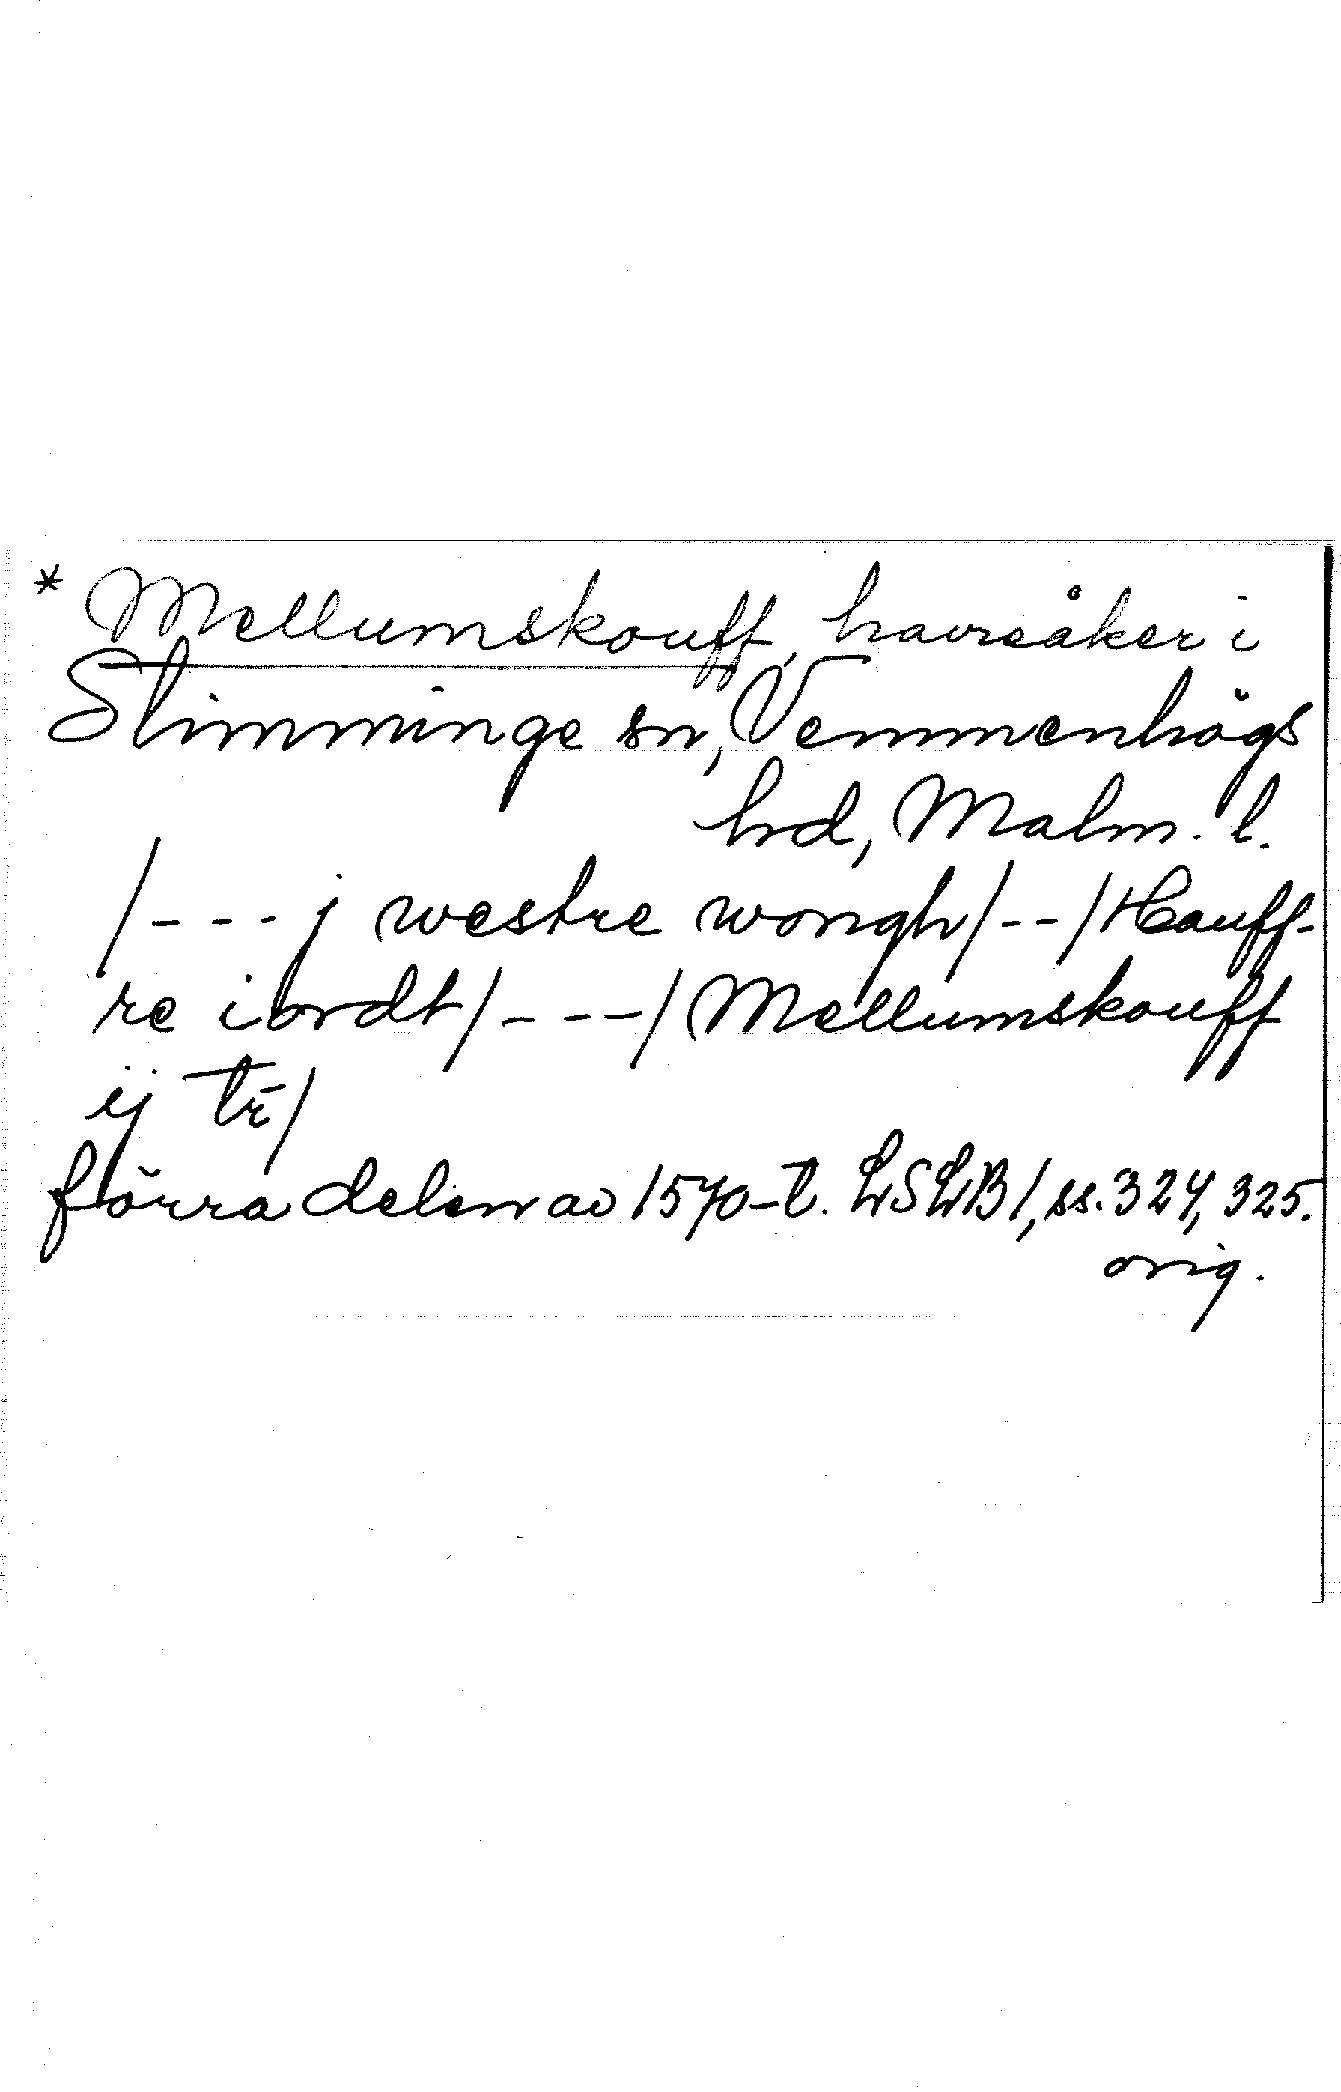 * Mellumskouff, havreåker i
Slimminge sn, Vemmenhögs
hrd, Malm. l.
/- - - j westre wongh/- -/Hauff-
re iordt/- - -/Mellumskouff
ij tr̄/
förra delen av 1570-t. LSLB 1, ss. 324, 325.
orig.